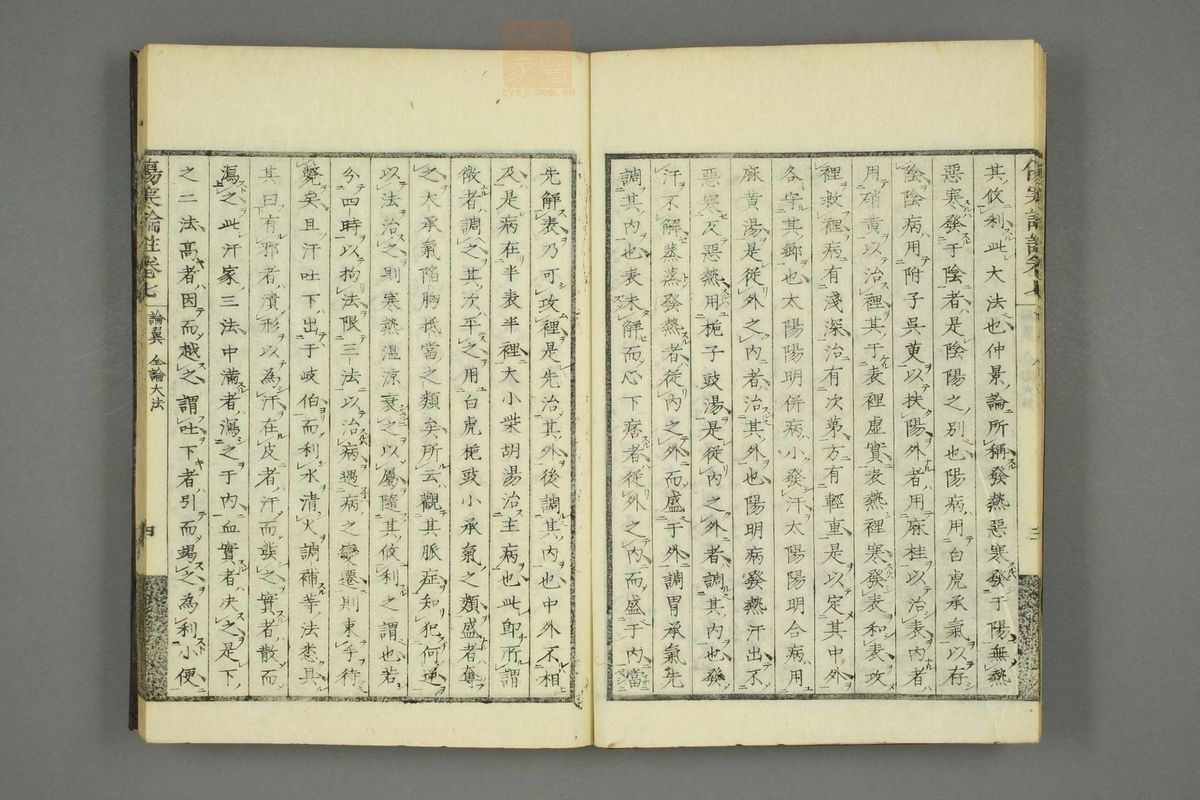 其攸利此大法也仲景論所稱發熱惡寒發于陽無熱
惡寒發于陰者是陰陽之別也陽病用白虎承氣以存
陰陰病用附子吳萸以扶陽外者用麻桂以治表內者
用硝黃以治裡其于表裡虛實表熱裡寒發表和表攻
裡救裡病有淺深治有次第方有輕重是以定其中外
各守其鄉也太陽陽明併病小發汗太陽陽明合病用
麻黃湯是從外之內者治其外也陽明病發熱汗出不
惡寒反惡熱用梔子豉湯是從內之外者調其內也發
汗不解蒸蒸發熱者從內之外而盛于外調胃承氣先
調其內也表未解而心下痞者從外之內而盛于內當
先解表乃可攻裡是先治其外後調其內也中外不相
及是病在半表半裡大小柴胡湯治主病也此即所謂
微者調之其次平之用白虎梔豉小承氣之類盛者奪
之大承氣陷胸抵當之類矣所云觀其脈症知犯何逆
以法治之則寒熱溫涼衰之以屬隨其攸利之謂也若
分四時以拘法限三法以治病遇病之變遷則束手待
斃矣且汗吐下出于岐伯而利水清火調補等法悉具
其曰有邪者漬形以為汗在皮者汗而發之實者散而
瀉之此汗家三法中滿者瀉之于內血實者決之是下
之二法高者因而越之謂吐下者引而竭之為利小便
傷寒論註卷七
論翼 全論大法
四
zysj.com.cn